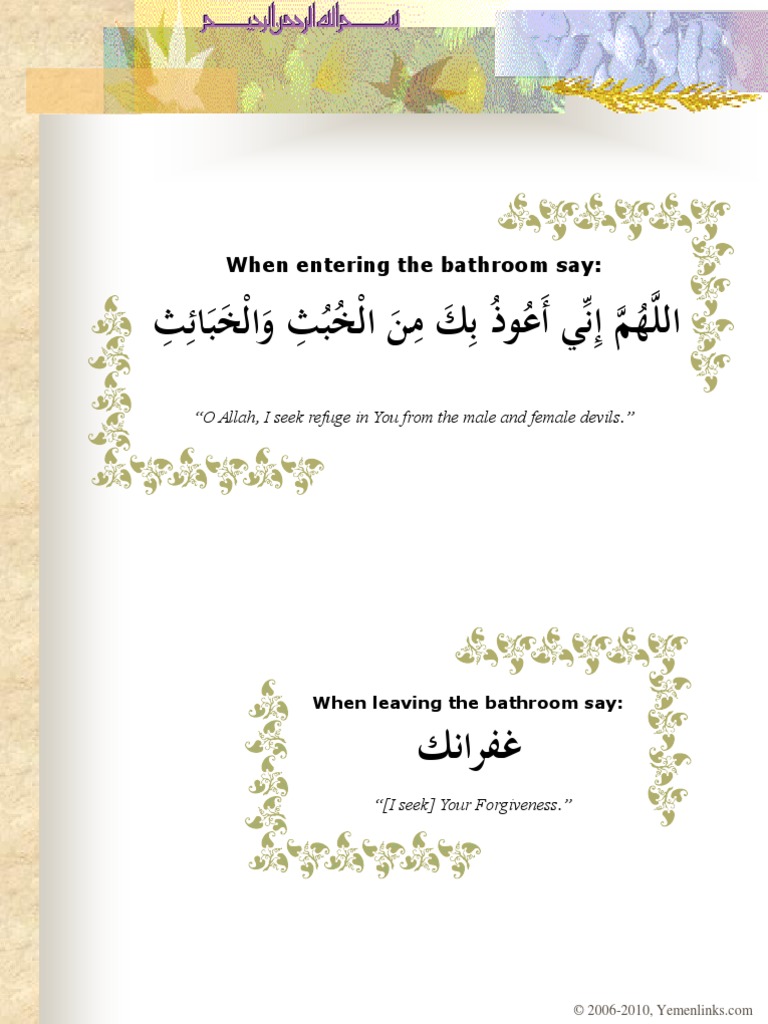 بسم الله الرحمن الرحيم
When entering the bathroom say:
اللَّهُمَّ إِنِّي أَعُوذُ بِكَ مِنَ الْخُبُثِ وَالْخَبَائِثِ
“O Allah, I seek refuge in You from the male and female devils.”
When leaving the bathroom say:
غفرانك
“[I seek] Your Forgiveness.”
© 2006-2010, Yemenlinks.com